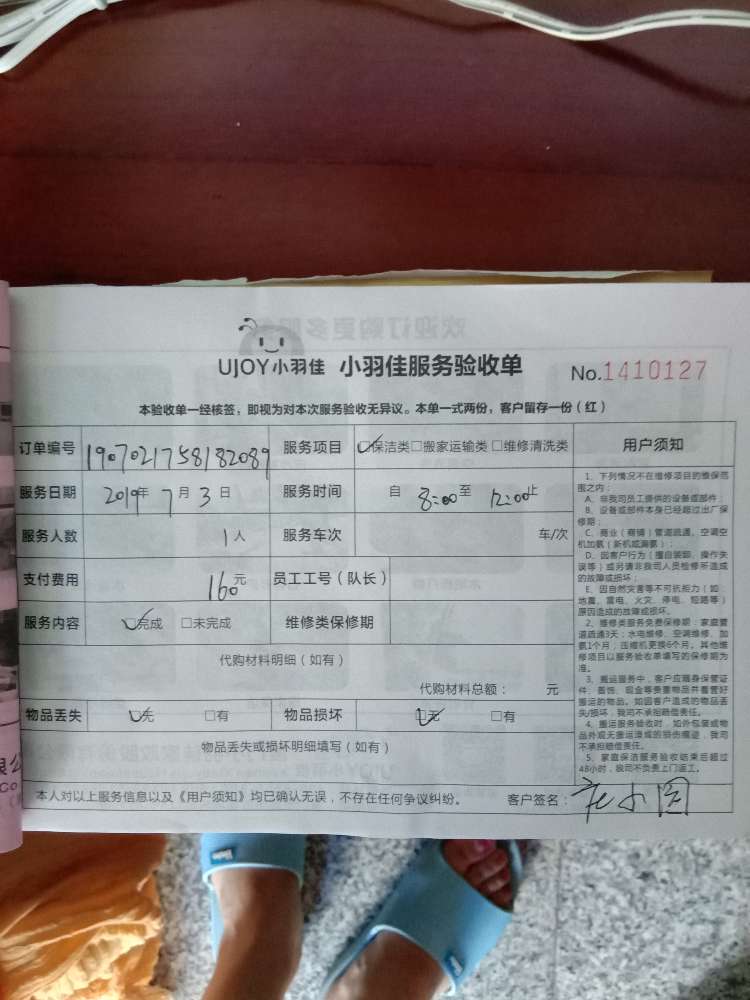 UJOY小羽佳 小羽佳服务验收单 No.1410127
本验收单一经核签，即视为对本次服务验收无异议。本单一式两份，客户留存一份（红）
订单编号 1907021758182089 服务项目 ☑保洁类□搬家运输类□维修清洗类
服务日期 2019年7月3日 服务时间 自 8:00至 12:00止
服务人数 1人 服务车次 车/次
支付费用 160元 员工工号（队长）
服务内容 ☑完成 □未完成 维修类保修期
代购材料明细（如有）
代购材料总额： 元
物品丢失 ☑无 □有 物品损坏 ☑无 □有
物品丢失或损坏明细填写（如有）
本人对以上服务信息以及《用户须知》均已确认无误，不存在任何争议纠纷。 客户签名：
用户须知
1、下列情况不在维修项目的维保范
围之内：
A、非我司员工提供的设备或部件；
B、设备或部件本身已经超过出厂保
修期；
C、商业（商铺）管道疏通、空调空
机加氨（新机或漏氨）；
D、因客户行为（擅自装卸、操作失
误等）或另请非我司人员检修所造成
的故障或损坏；
E、因自然灾害等不可抗拒力（如：
地震、雷电、火灾、停电、短路等）
原因造成的故障或损坏。
2、维修类服务免费保修期：家庭管
道疏通3天；水电维修、空调维修、加
氨1个月；压缩机更换6个月。其他维
修项目以服务验收单填写的保修期为
准。
3、搬运服务中，客户应随身保管证
件、首饰、现金等贵重物品并看管好
搬运的物品。如因客户造成的物品丢
失/损坏，我司不承担赔偿责任。
4、搬运服务验收时，如外包装或物
品外观无搬运造成的损伤痕迹，我司
不承担赔偿责任。
5、家庭保洁服务验收结束后超过
48小时，我司不负责上门返工。